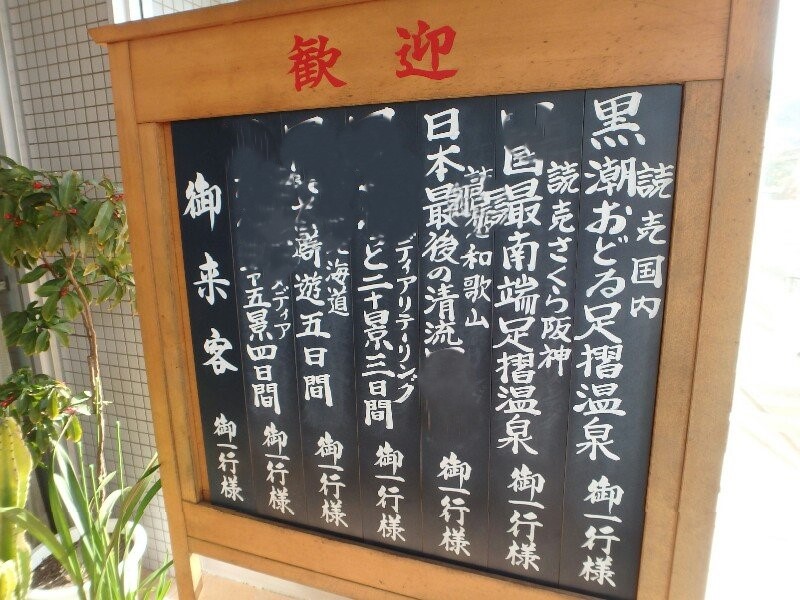 歓迎
読売国内
黒潮おどる足摺温泉 御一行様
読売さくら阪神
国最南端足摺温泉 御一行様
和歌山
日本最後の清流 御一行様
ティアリテーリング
と二十景三日間 御一行様
海道
遊五日間 御一行様
メディア
五景四日間 御一行様
御来客 御一行様